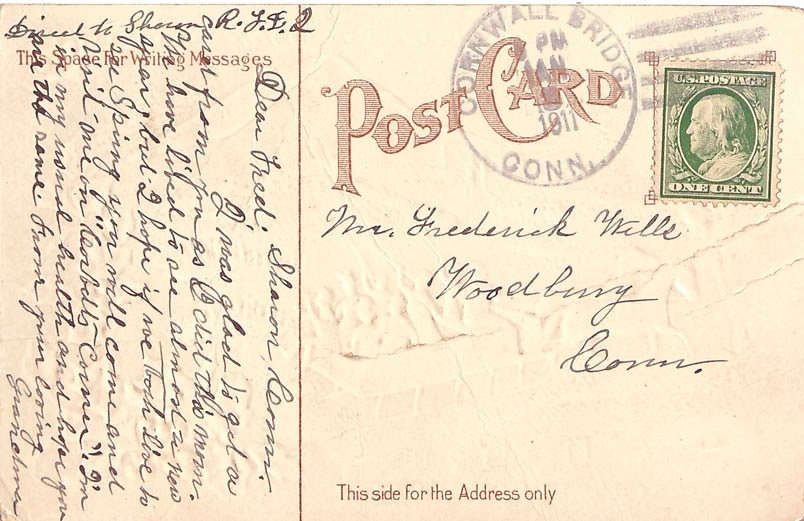 Direct to Sharon R.F.D. 2
This Space For Writing Messages
Sharon, Conn.
Dear Fred;
I was glad to get a
card from you as I did this morn.
have liked to see almost a new
year, but I hope if we both live to
see Spring you will come and
visit me in "Corbetts Corner". I'm
in my usual health and hope you
are the same. From your loving
Grandma
POST CARD
CORNWALL BRIDGE
PM
JAN
1911
CONN.
U.S. POSTAGE
ONE CENT
Mr. Frederick Wells
Woodbury
Conn.
This side for the Address only